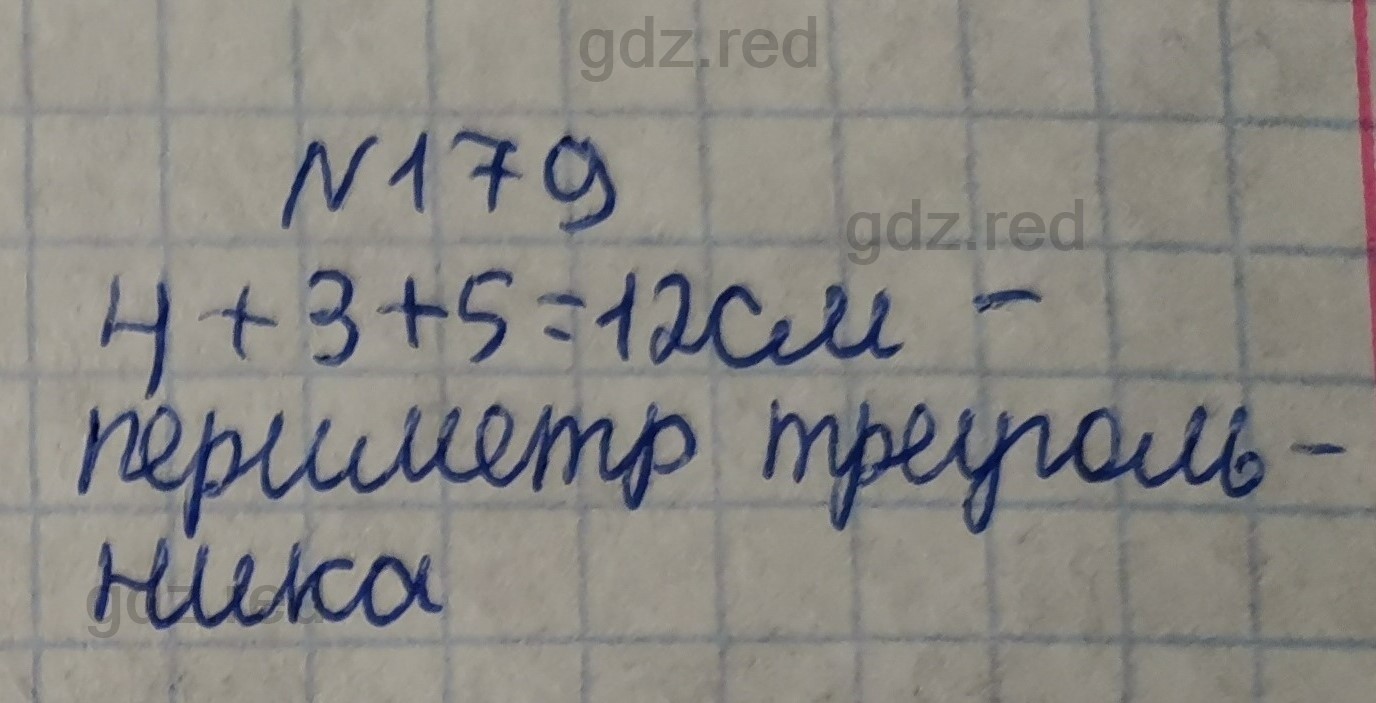 gdz.red
N179
gdz.red
4+3+5=12см -
периметр треуголь-
ника
gdz.red